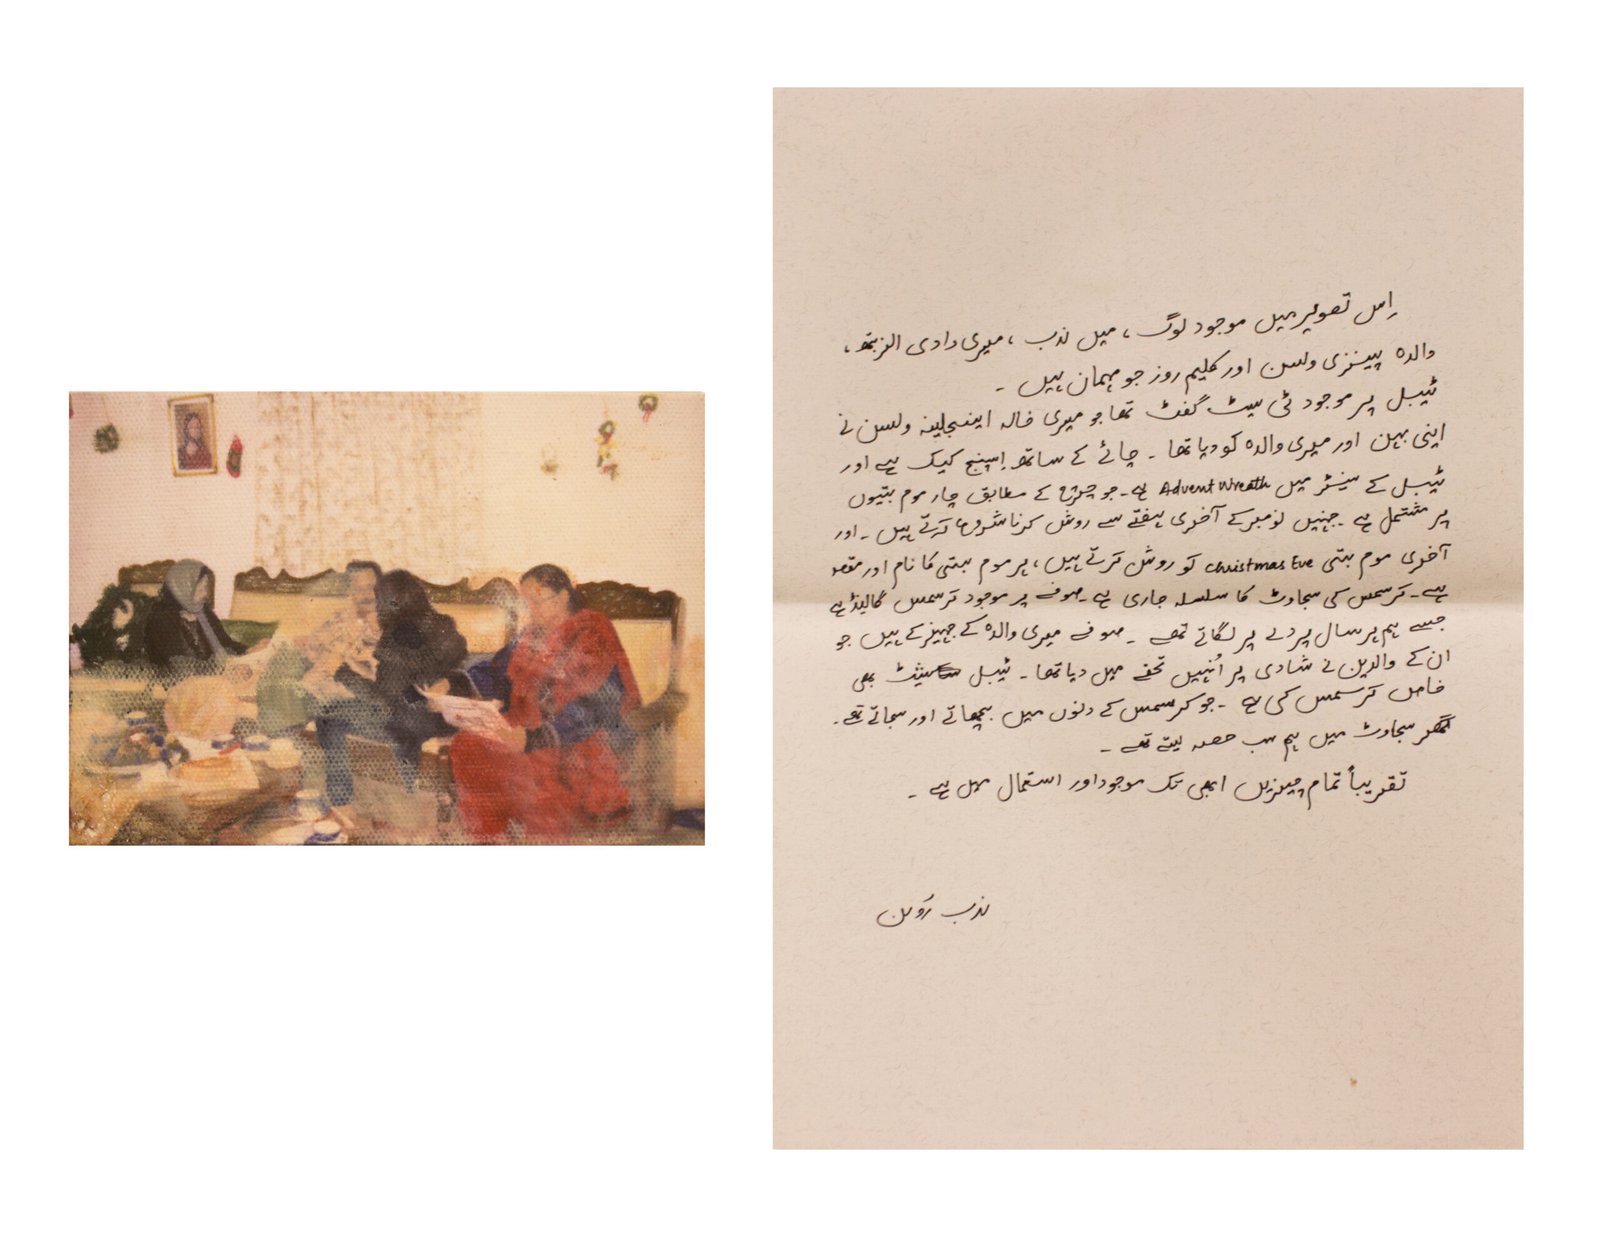 اِس تصویر میں موجود لوگ ، میں ندب ، میری دادی الزبتھ ،
والدہ پینزی ولسن اور کلیم روز جو مہمان ہیں ۔
ٹیبل پر موجود ٹی سیٹ گفٹ تھا جو میری خالہ اینجلینہ ولسن نے
اپنی بہن اور میری والدہ کو دیا تھا ۔ چائے کے ساتھ اِسپنج کیک ہے اور
ٹیبل کے سینٹر میں Advent Wreath ہے ۔ جو چرچ کے مطابق چار موم بتیوں
پر مشتمل ہے ۔ جنہیں نومبر کے آخری ہفتے سے روشن کرنا شروع کرتے ہیں ۔ اور
آخری موم بتی Christmas Eve کو روشن کرتے ہیں ، ہر موم بتی کا نام اور مقصد
ہے ۔ کرسمس کی سجاوٹ کا سلسلہ جاری ہے ۔ صوفے پر موجود کرسمس گالینڈ ہے
جسے ہم ہر سال پردے پر لگاتے تھے ۔ صوفے میری والدہ کے جہیز کے ہیں جو
ان کے والدین نے شادی پر اُنہیں تحفے میں دیا تھا ۔ ٹیبل شیٹ بھی
خاص کرسمس کی ہے ۔ جو کرسمس کے دنوں میں بچھاتے اور سجاتے تھے ۔
گھر سجاوٹ میں ہم سب حصہ لیتے تھے ۔
تقریباً تمام چیزیں ابھی تک موجود اور استعمال میں ہے ۔
ندب